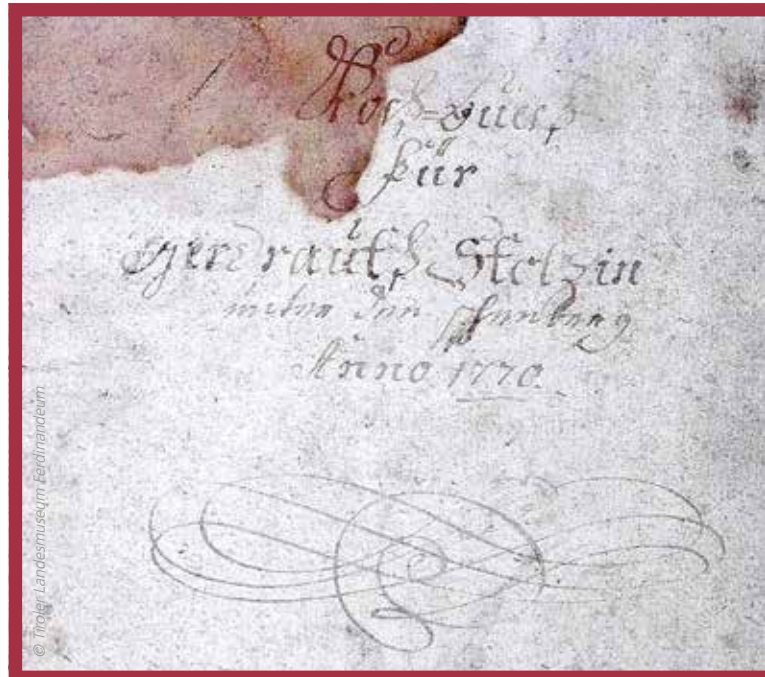 Koch=buech
für
Gerdrauth Stolzin
unter den
Anno 1770.
© Tiroler Landesmuseum Ferdinandeum